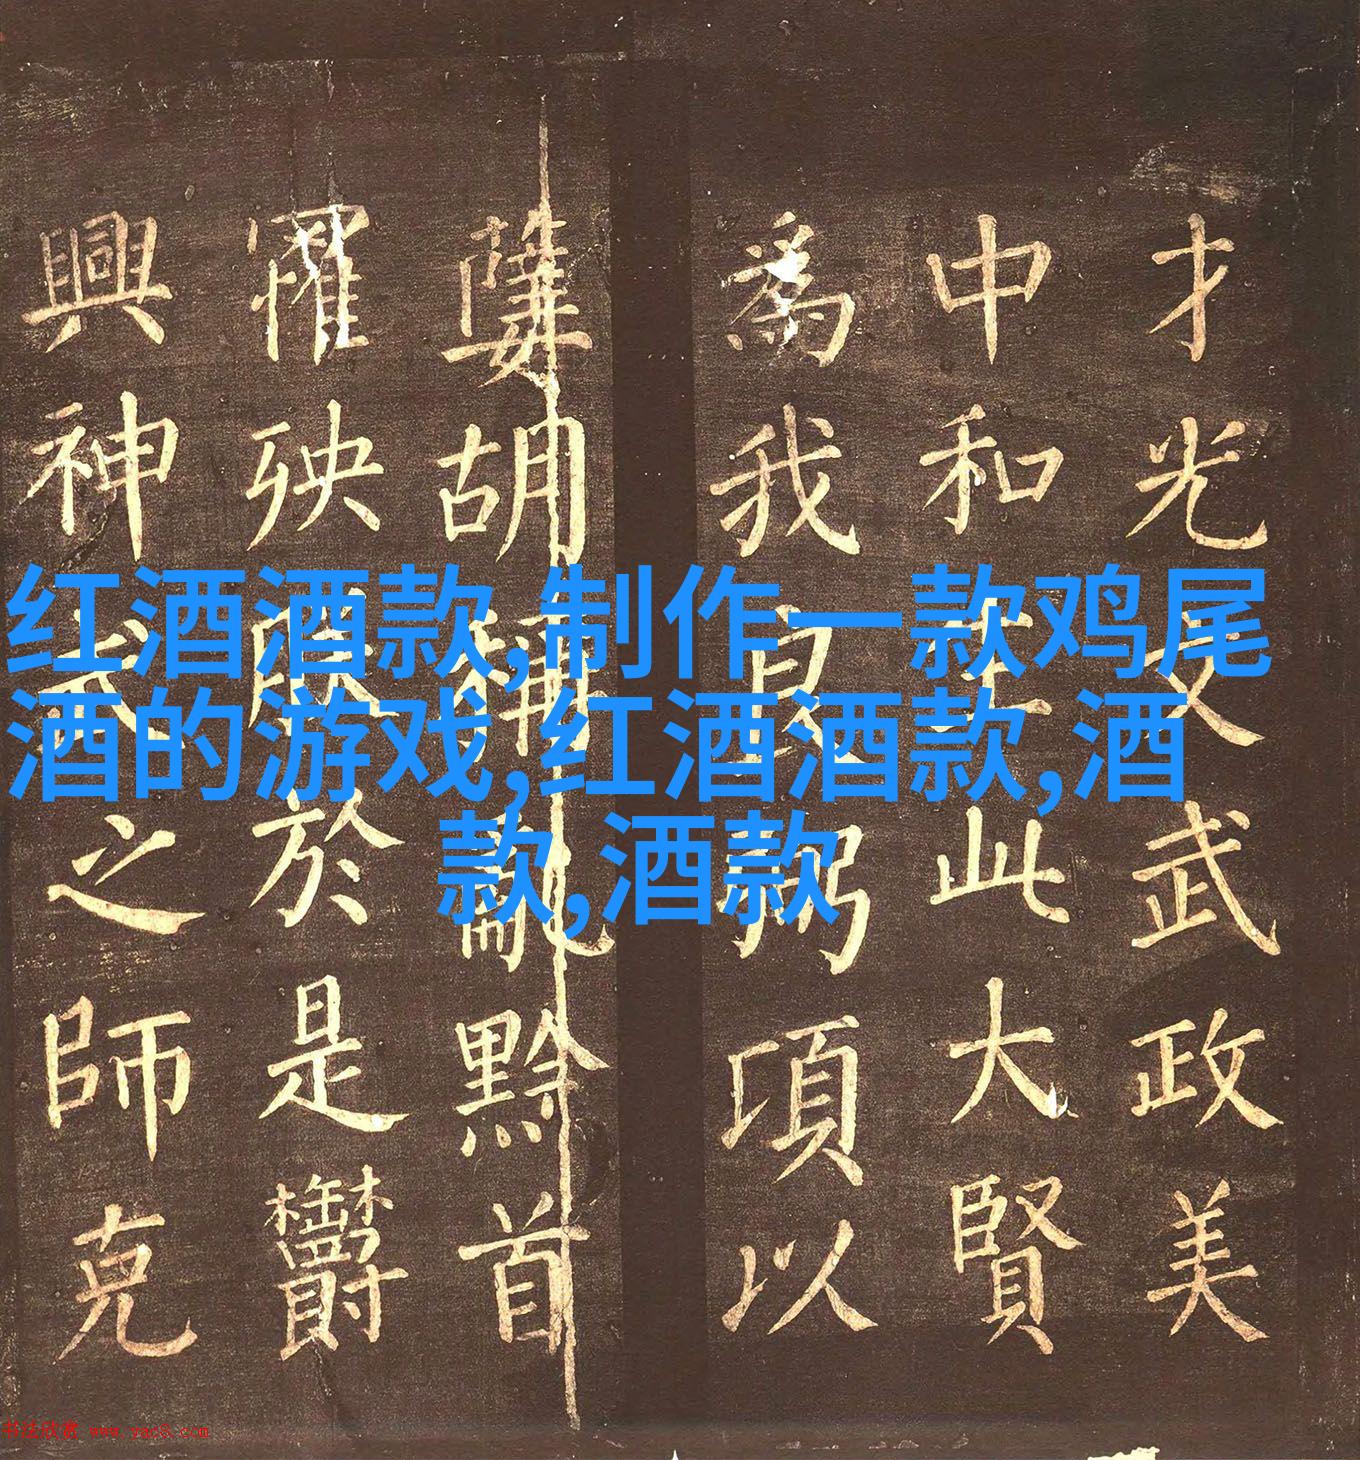 红酒酒款,制作一款鸡尾
酒的游戏,红酒酒款,酒
款,酒款
才光文武政美
中和生此大賢
為我良弼項以
胡稱亂黔首
罹殃於是
興神武之師克
书法欣赏 www.yac8.com